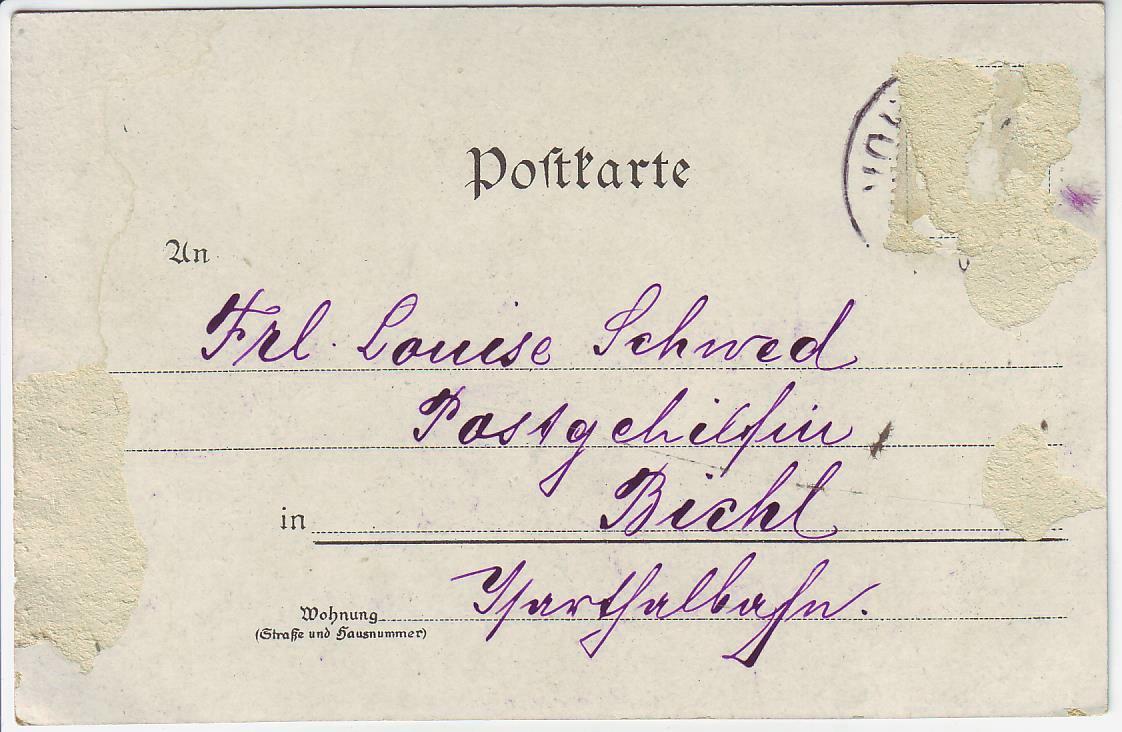 Postkarte
An
Frl. Louise Schwed
Postgehilfin
in Bichl
Isarthalbahn.
Wohnung
(Straße und Hausnummer)